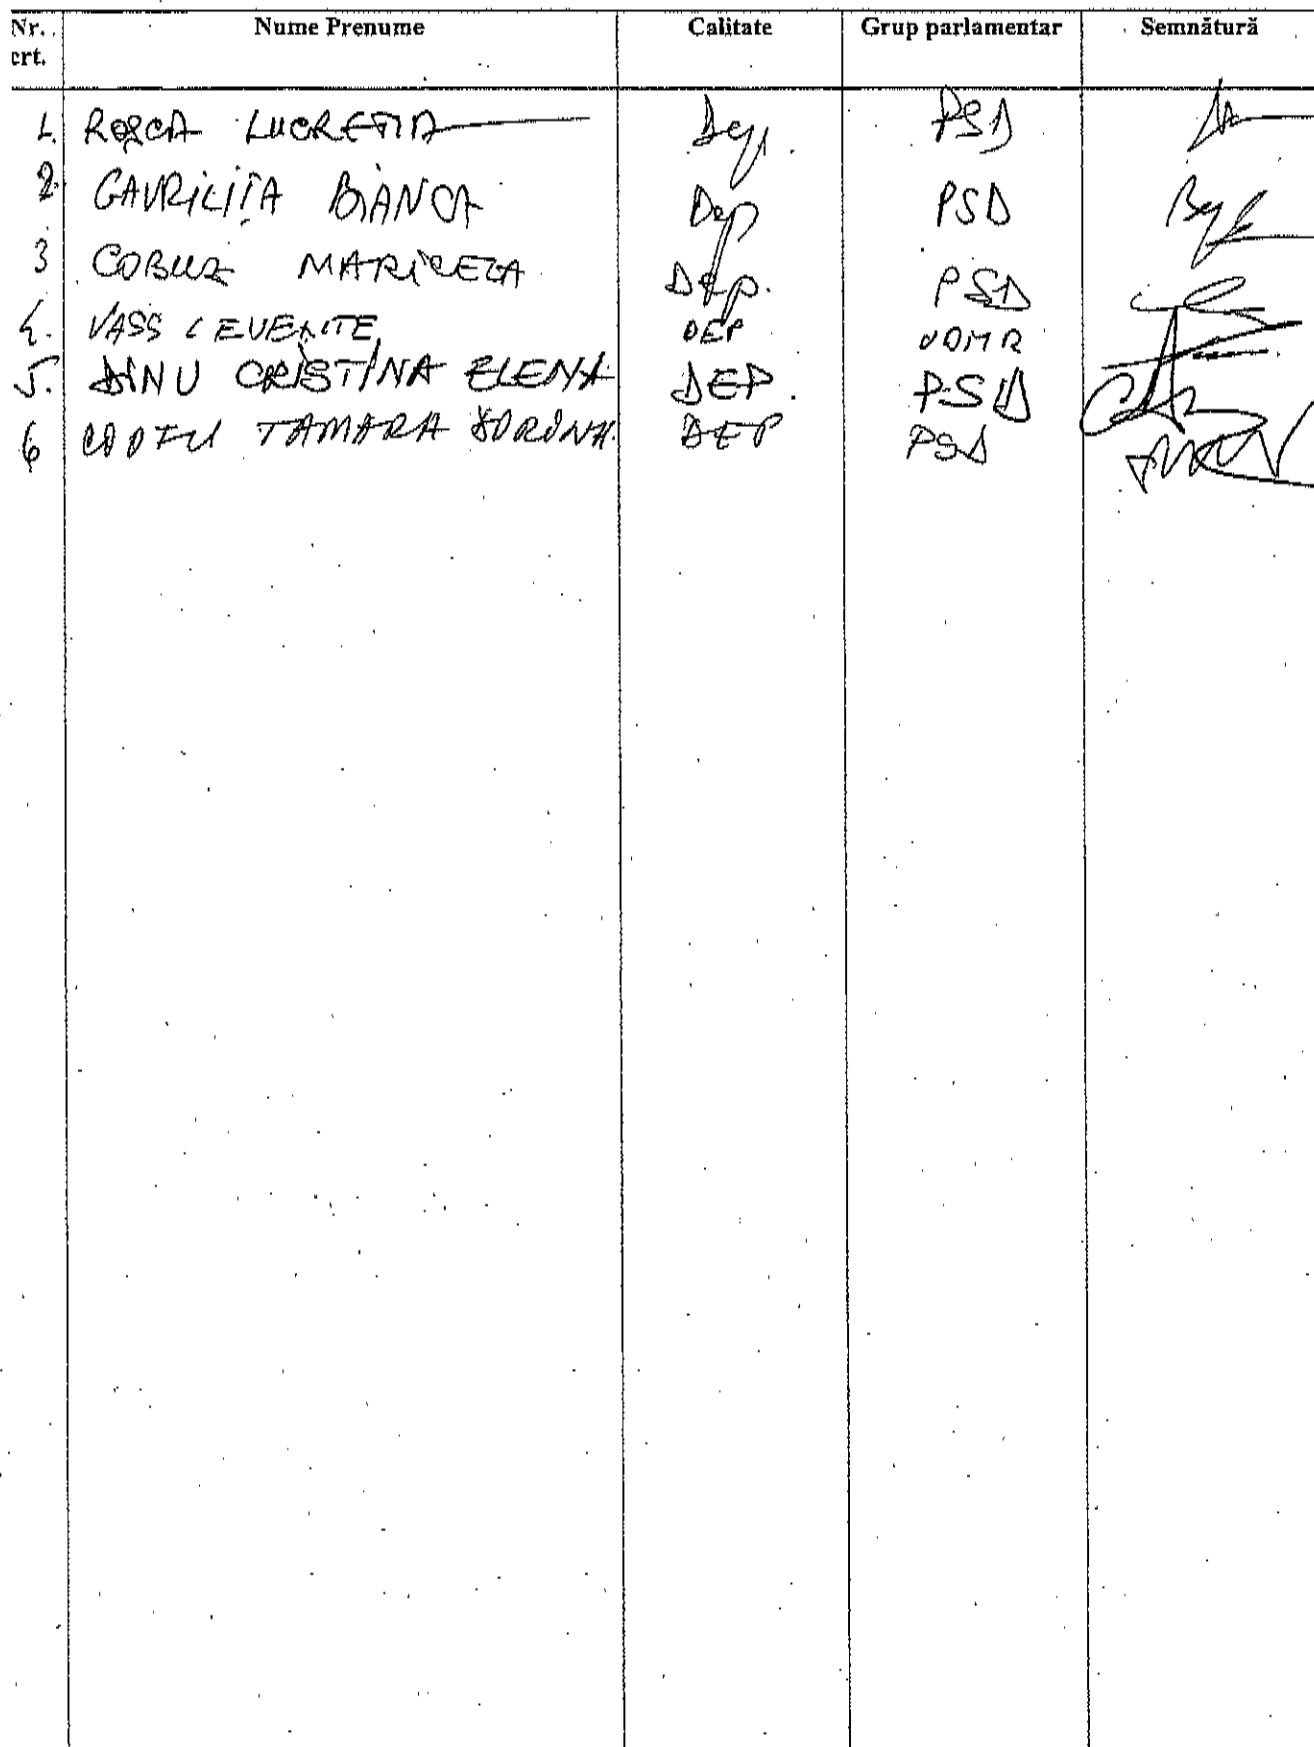 Nr. Nume Prenume Calitate Grup parlamentar Semnătură
crt.
1. ROȘCA LUCREȚIA Dep. PSD
2. GAVRILIȚA BIANCA Dep PSD
3 COBUZ MARICELA Dep. PSD
4. VASS LEVENTE DEP UDMR
5. DINU CRISTINA ELENA DEP. PSD
6 TAMARA DORINA DEP PSD